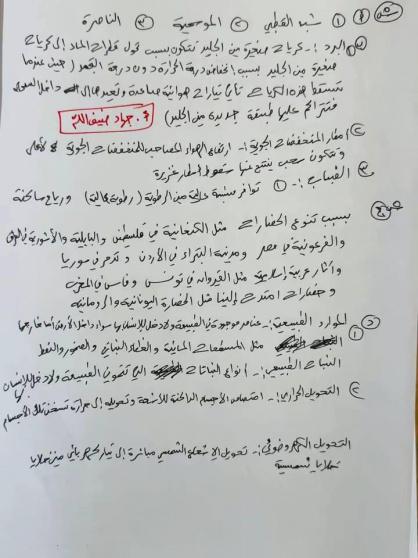 س١ ١) شبه القطبي ٢) الموسمية ٣) الناصرة
١) البرد :- كريات صغيرة من الجليد تتكون بسبب تحول قطرات الماء إلى كريات
صغيرة من الجليد بسبب انخفاض درجة الحرارة دون درجة التجمد (حيث عندما
تتساقط هذه الكريات تأتي تيارات هوائية صاعدة وتعيدها إلى داخل
فتتراكم عليها طبقة جديدة من الجليد)
أ. جهاد ضيف الله
٢) أمطار المنخفضات الجوية :- ارتفاع الهواء المصاحب للمنخفضات الجوية للأعلى
وتتكون سحب ينتج عنها سقوط أمطار غزيرة
٣) الضباب :- ١) توافر نسبة عالية من الرطوبة (رطوبة عالية) ورياح ساكنة
بسبب تنوع الحضارات مثل الكنعانية في فلسطين والبابلية والآشورية في العراق
والفرعونية في مصر ومدينة البتراء في الأردن وتدمر في سوريا
وآثار عربية إسلامية مثل القيروان في تونس وفاس في المغرب
وحضارات امتدت إلينا مثل الحضارة اليونانية والرومانية
١) الموارد الطبيعية :- عناصر موجودة في الطبيعة ولا دخل للإنسان بها سواء داخل الأرض أم خارجها
مثل المسطحات المائية والغطاء النباتي والصخور والنفط
النبات الطبيعي :- أنواع النباتات التي تنمو في الطبيعة ولا دخل للإنسان
٢) التحويل الحراري :- امتصاص الأجسام الداكنة للأشعة وتحويلها إلى حرارة تسخن تلك الأجسام
التحويل الكهروضوئي :- تحويل الإشعاع الشمسي مباشرة إلى تيار كهربائي عبر خلايا
شمسية